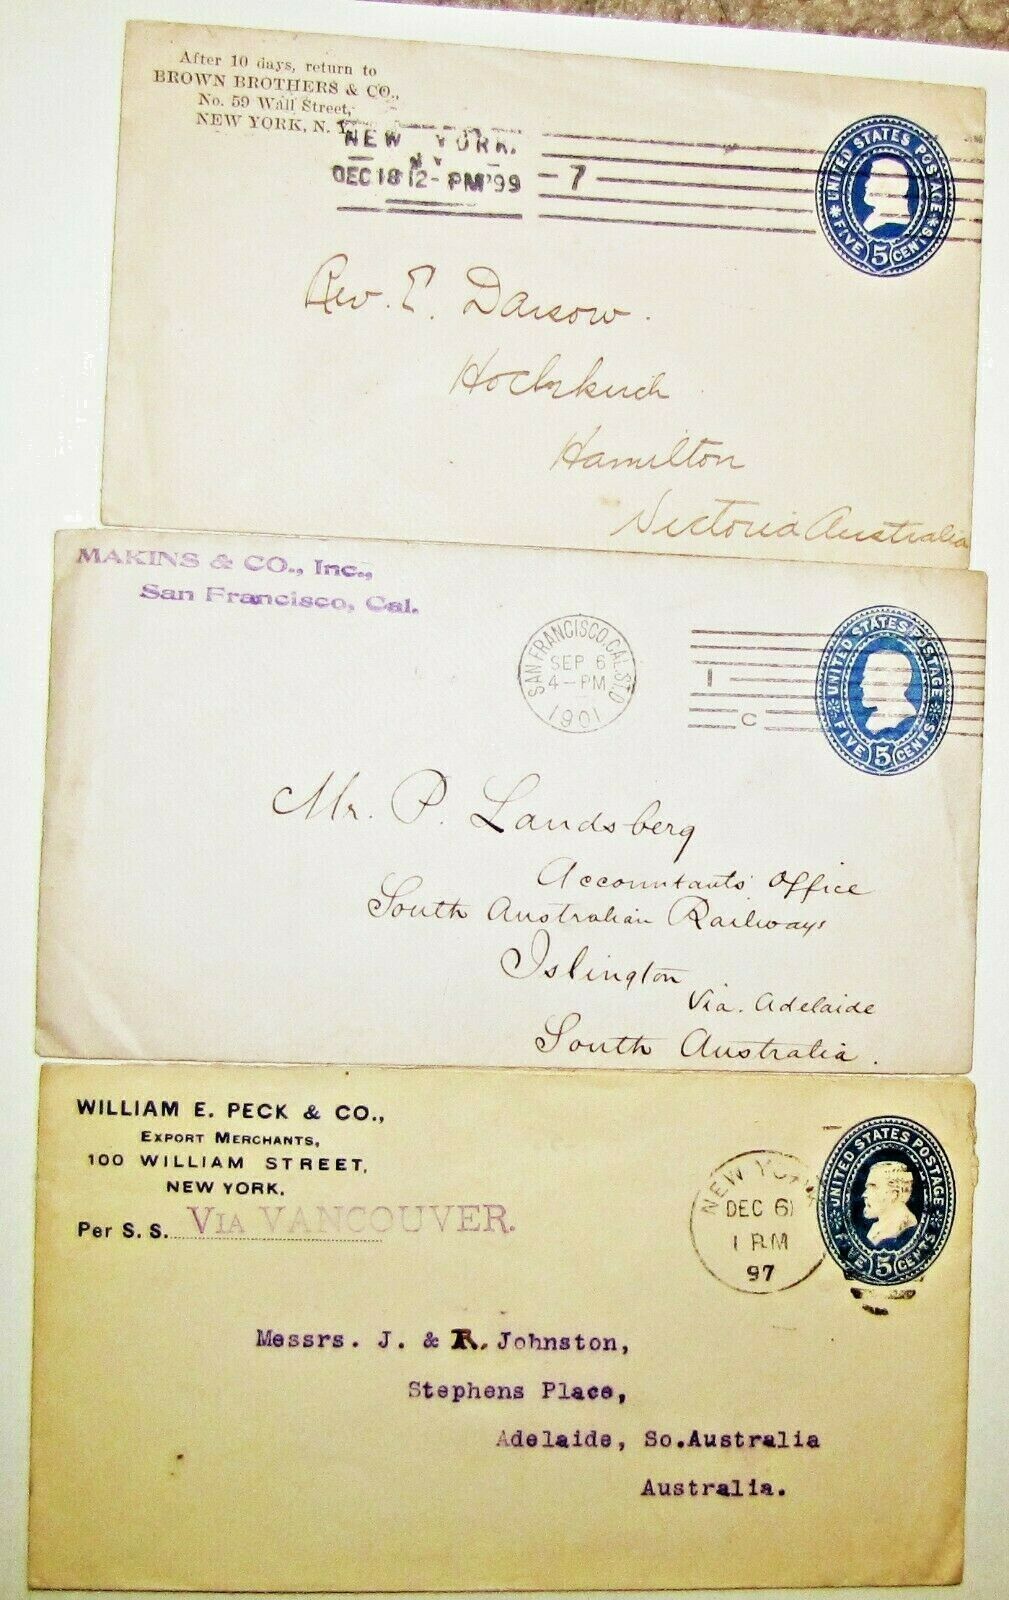 After 10 days, return to
BROWN BROTHERS & CO.,
No. 59 Wall Street,
NEW YORK, N. Y.
NEW YORK.
N Y
DEC 18 12-PM '99
7
UNITED STATES POSTAGE
FIVE 5 CENTS
Rev. E. Darsow.
Hochkirch
Hamilton
Victoria Australia
MAKINS & CO., Inc.,
San Francisco, Cal.
SAN FRANCISCO, CAL. ST'D
SEP 6
4-PM
1901
1
C
UNITED STATES POSTAGE
FIVE 5 CENTS
Mr. P. Landsberg
Accountants' Office
South Australian Railways
Islington
Via. Adelaide
South Australia.
WILLIAM E. PECK & CO.,
EXPORT MERCHANTS,
100 WILLIAM STREET,
NEW YORK.
Per S. S. VIA VANCOUVER.
NEW YORK
DEC 6
1 PM
97
UNITED STATES POSTAGE
FIVE 5 CENTS
Messrs. J. & R. Johnston,
Stephens Place,
Adelaide, So.Australia
Australia.